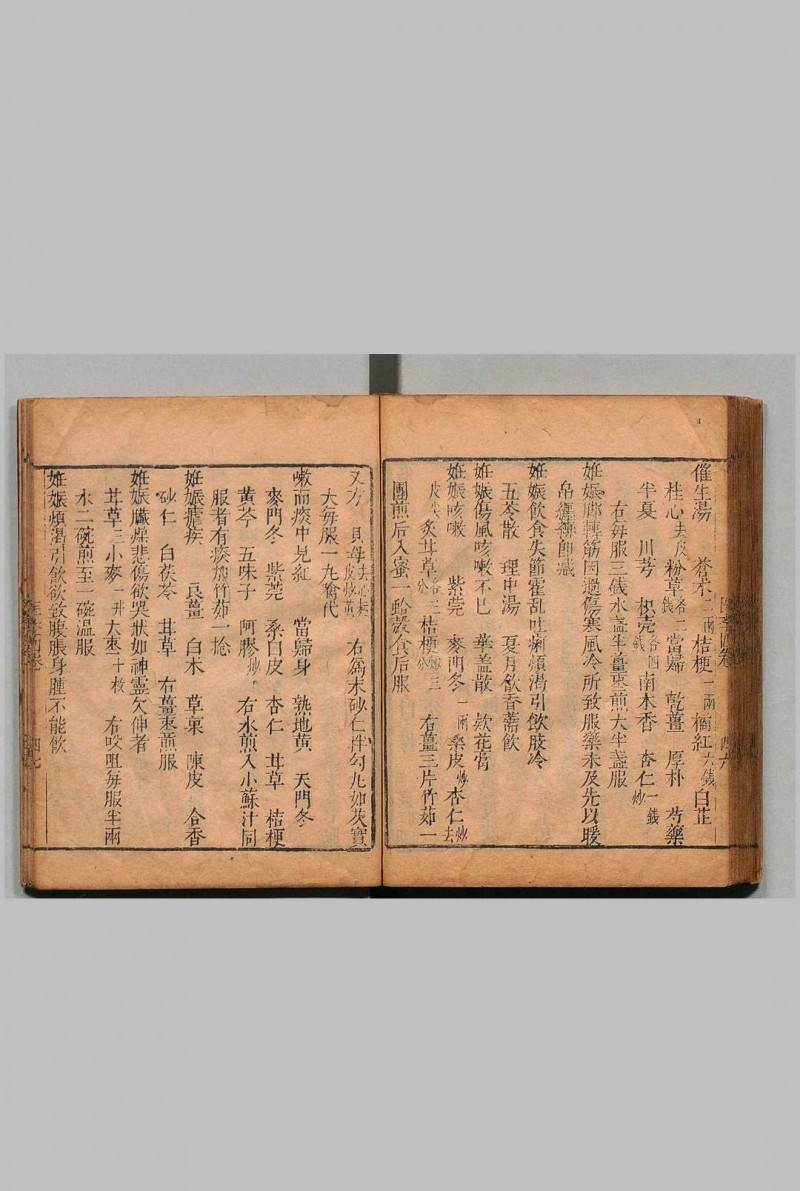 催生湯 蒼朮二兩 桔梗一兩 橘紅六錢 白芷
桂心去皮 粉草各二錢 當歸 乾薑 厚朴 芍藥
半夏 川芎 枳壳各四錢 南木香 杏仁一錢炒
右每服三錢水盞半薑棗煎大半盞服
妊娠腳轉筋因過傷寒風冷所致服藥未及先以暖
帛纏
妊娠飲食失節霍乱吐痢煩渴引飲肢冷
五苓散 理中湯 夏月飲香薷飲
妊娠傷風咳嗽不已 華盖散 欵花膏
妊娠咳嗽 紫莞 麥門冬一兩 桑皮炒 杏仁炒去
皮尖 炙甘草各三分 桔梗三分 右薑三片竹茹一
團煎后入蜜一蛤殼食后服
又方 貝母去心麩皮炒黃 右為末砂仁拌勻丸如芡實
大每服一丸噙化
嗽而痰中見紅 當歸身 熟地黃 天門冬
麥門冬 紫莞 桑白皮 杏仁 甘草 桔梗
黃芩 五味子 阿膠炒 右水煎入小蘇汁同
服者有痰加竹茹一捻
妊娠瘧疾 良薑 白朮 草菓 陳皮 合香
砂仁 白茯苓 甘草 右薑棗煎服
妊娠臟燥悲傷欲哭狀如神靈欠伸者
甘草三 小麥一升 大棗十枚 右咬咀每服半兩
水二碗煎至一碗温服
妊娠煩渴引飲欲致腰脹身腫不能飲